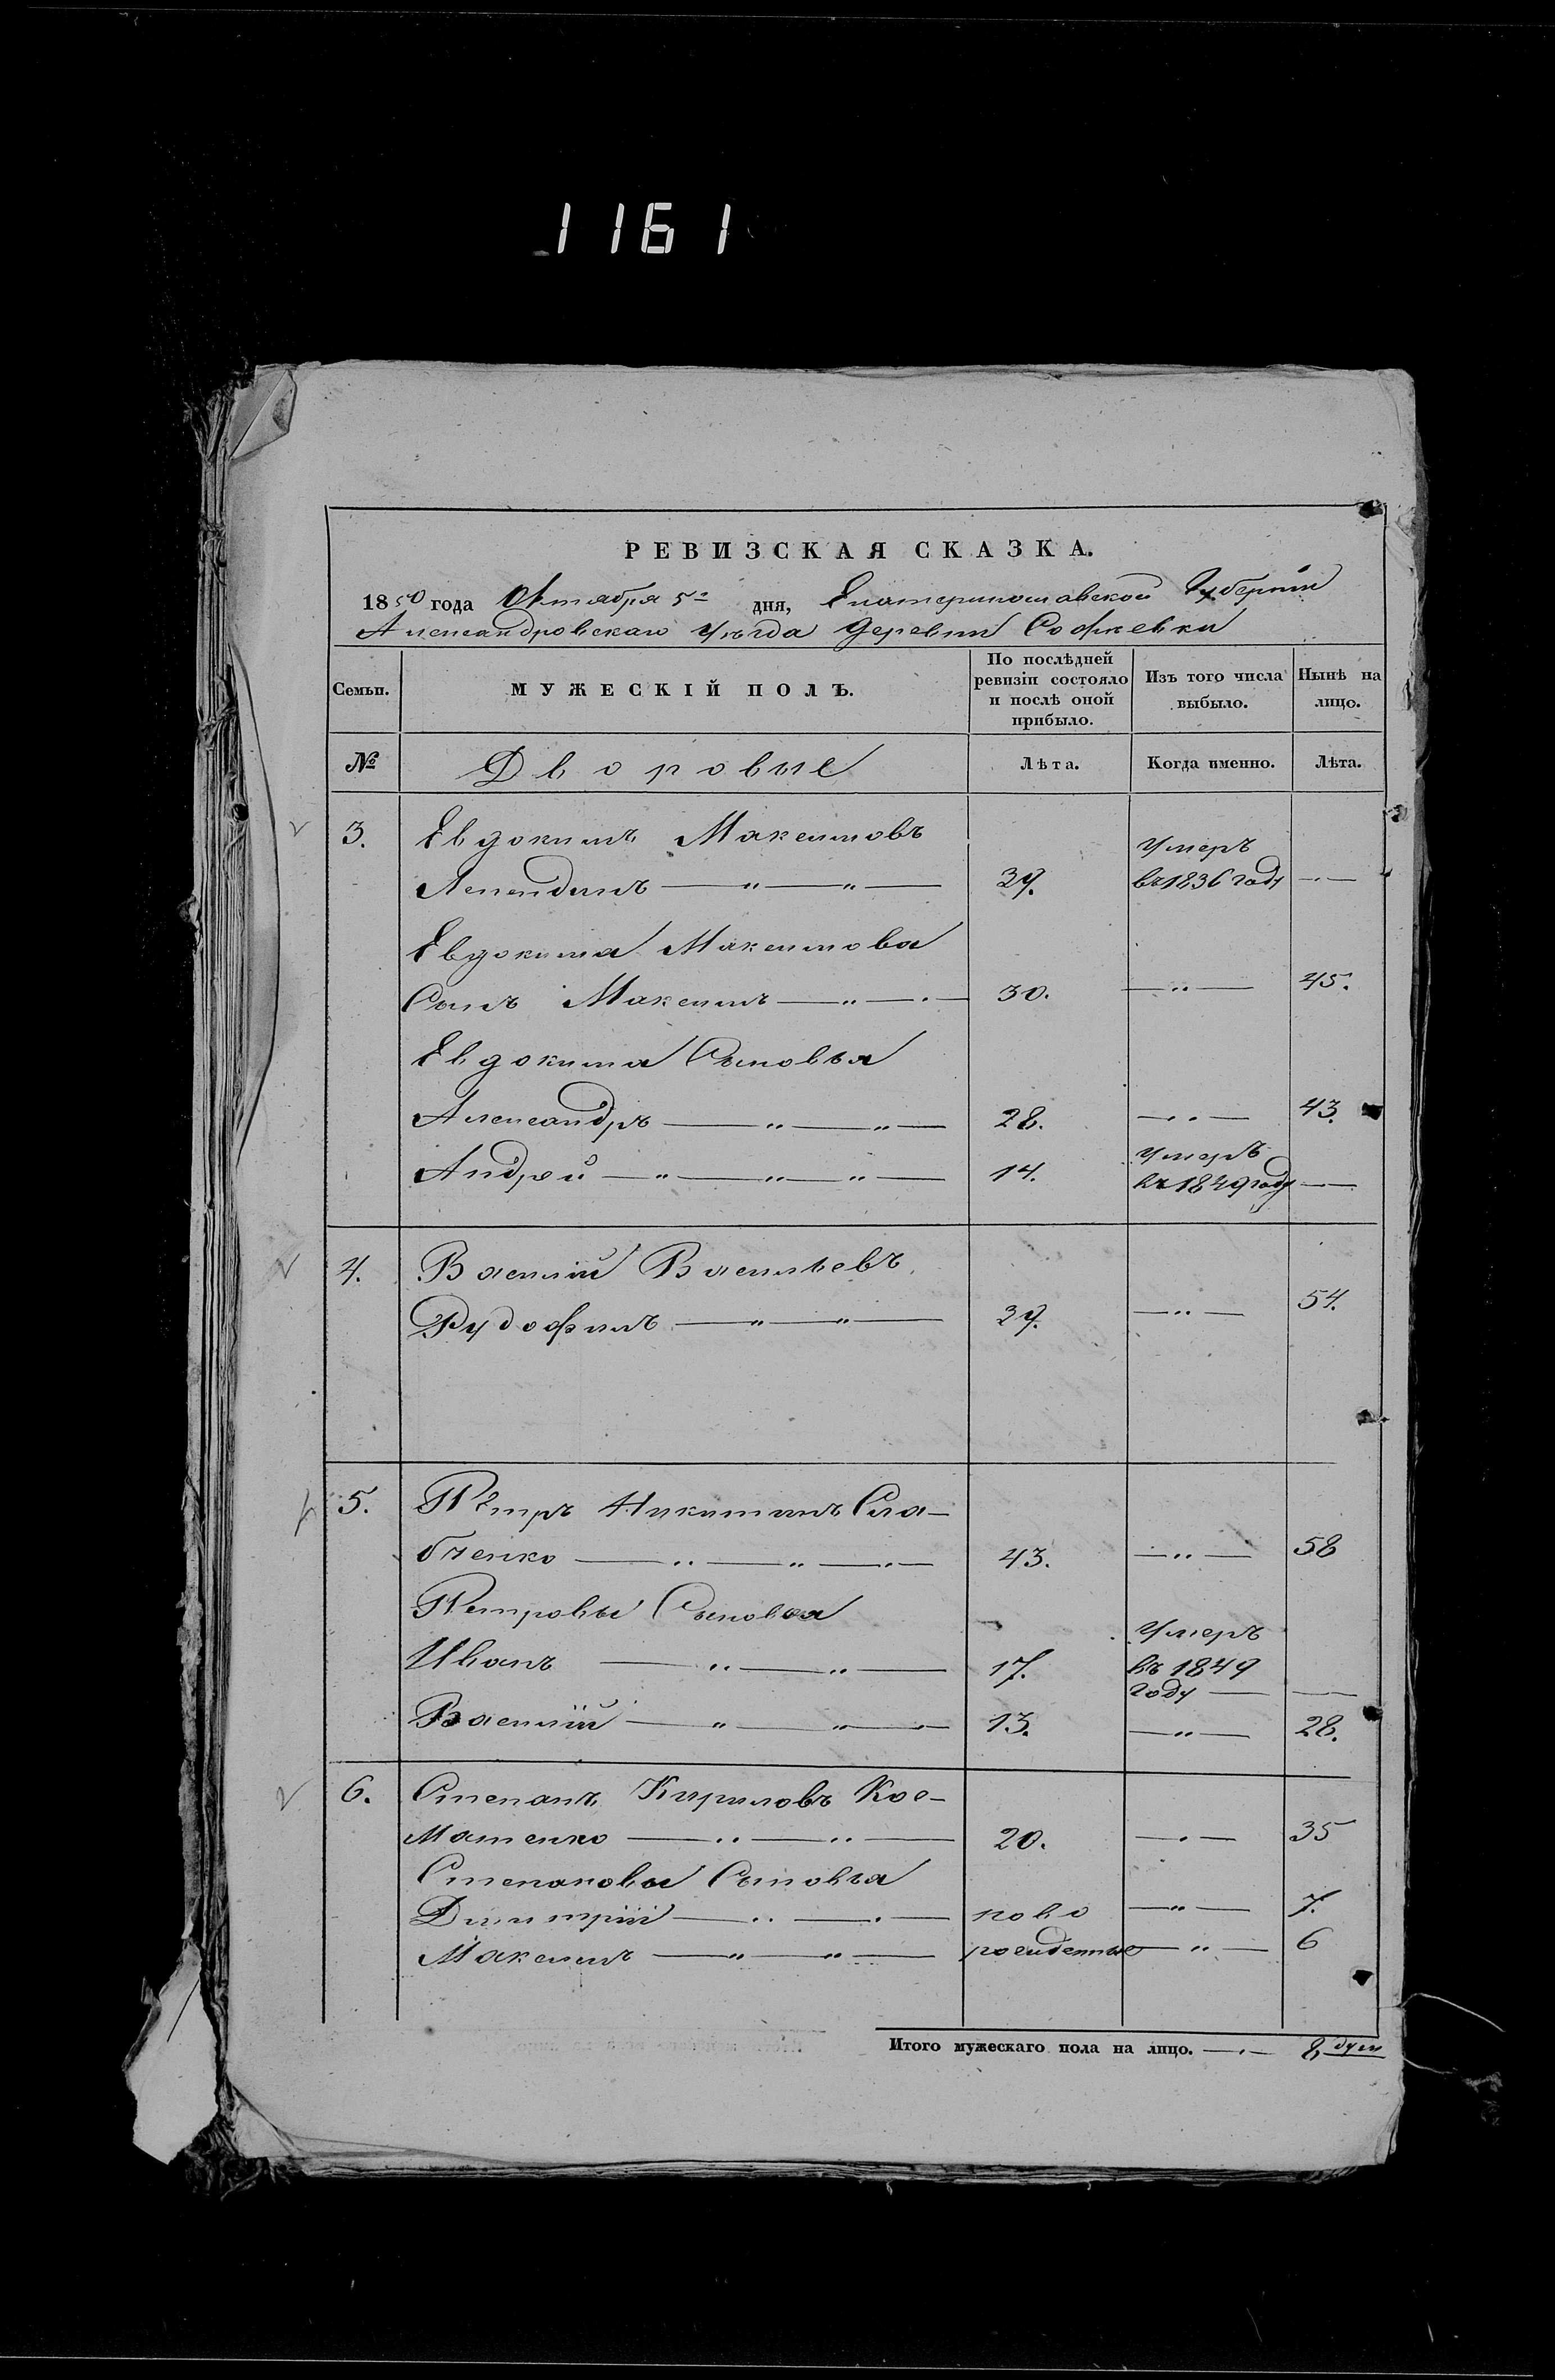 1161
РЕВИЗСКАЯ СКАЗКА.
1850 года Октября 5го дня, Екатеринославской Губернiи
Александровскаго Уѣзда Деревни Софiевки
Семьи. МУЖЕСКIЙ ПОЛЪ. По послѣдней ревизiи состояло и послѣ оной прибыло. Изъ того числа выбыло. Нынѣ на лицо.
№ Дворовые Лѣта. Когда именно. Лѣта.
3. Евдокимъ Максимовъ Умеръ
39. въ 1836 году —
Евдокима Максимова
Сынъ Максимъ — 30. — 45.
Евдокима Сыновья
Александръ — 28. — 43.
Умеръ
Андрей — 14. въ 1849 году —
4. Василiй Васильевъ
39. — 54.
5. Петръ Никитинъ Сла-
бченко — 43. — 58
Петровы Сыновья
Умеръ
Иванъ — 17. въ 1849
году — —
Василiй — 13. — 28.
6. Степанъ Кириловъ Кос-
матенко — 20. — 35
Степановы Сыновья
Димитрiй — ново — 7.
Максимъ — рожденные — 6
Итого мужескаго пола на лицо. — 8 душ